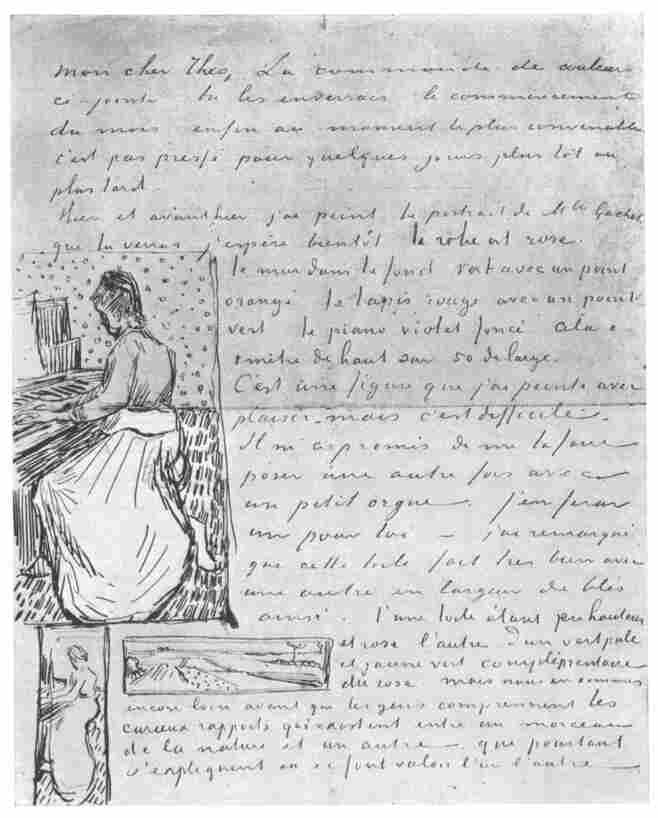 Mon cher Theo, La commande de couleurs
ci-jointe tu les enverrais le commencement
du mois enfin au moment le plus convenable
c'est pas pressé pour quelques jours plus tôt ou
plus tard.
Hier et avanthier j'ai peint le portrait de Mlle Gachet
que tu verras j'espère bientôt la robe est rose.
le mur dans le fond vert avec un point
orangé le tapis rouge avec un point
vert le piano violet foncé cela a
1 mètre de haut sur 50 de large.
C'est une figure que j'ai peinte avec
plaisir – mais c'est difficile.
Il m'a promis de me la faire
poser une autre fois avec
un petit orgue. J'en ferai
un pour toi – j'ai remarqué
que cette toile fait très bien avec
une autre en largeur de blés
ainsi. l'une toile étant en hauteur
et rose l'autre d'un vert pale
et jaune vert complémentaire
du rose mais nous en sommes
encore loin avant que les gens comprennent les
curieux rapports qui existent entre un morceau
de la nature et un autre – que pourtant
s'expliquent et se font valoir l'un l'autre –